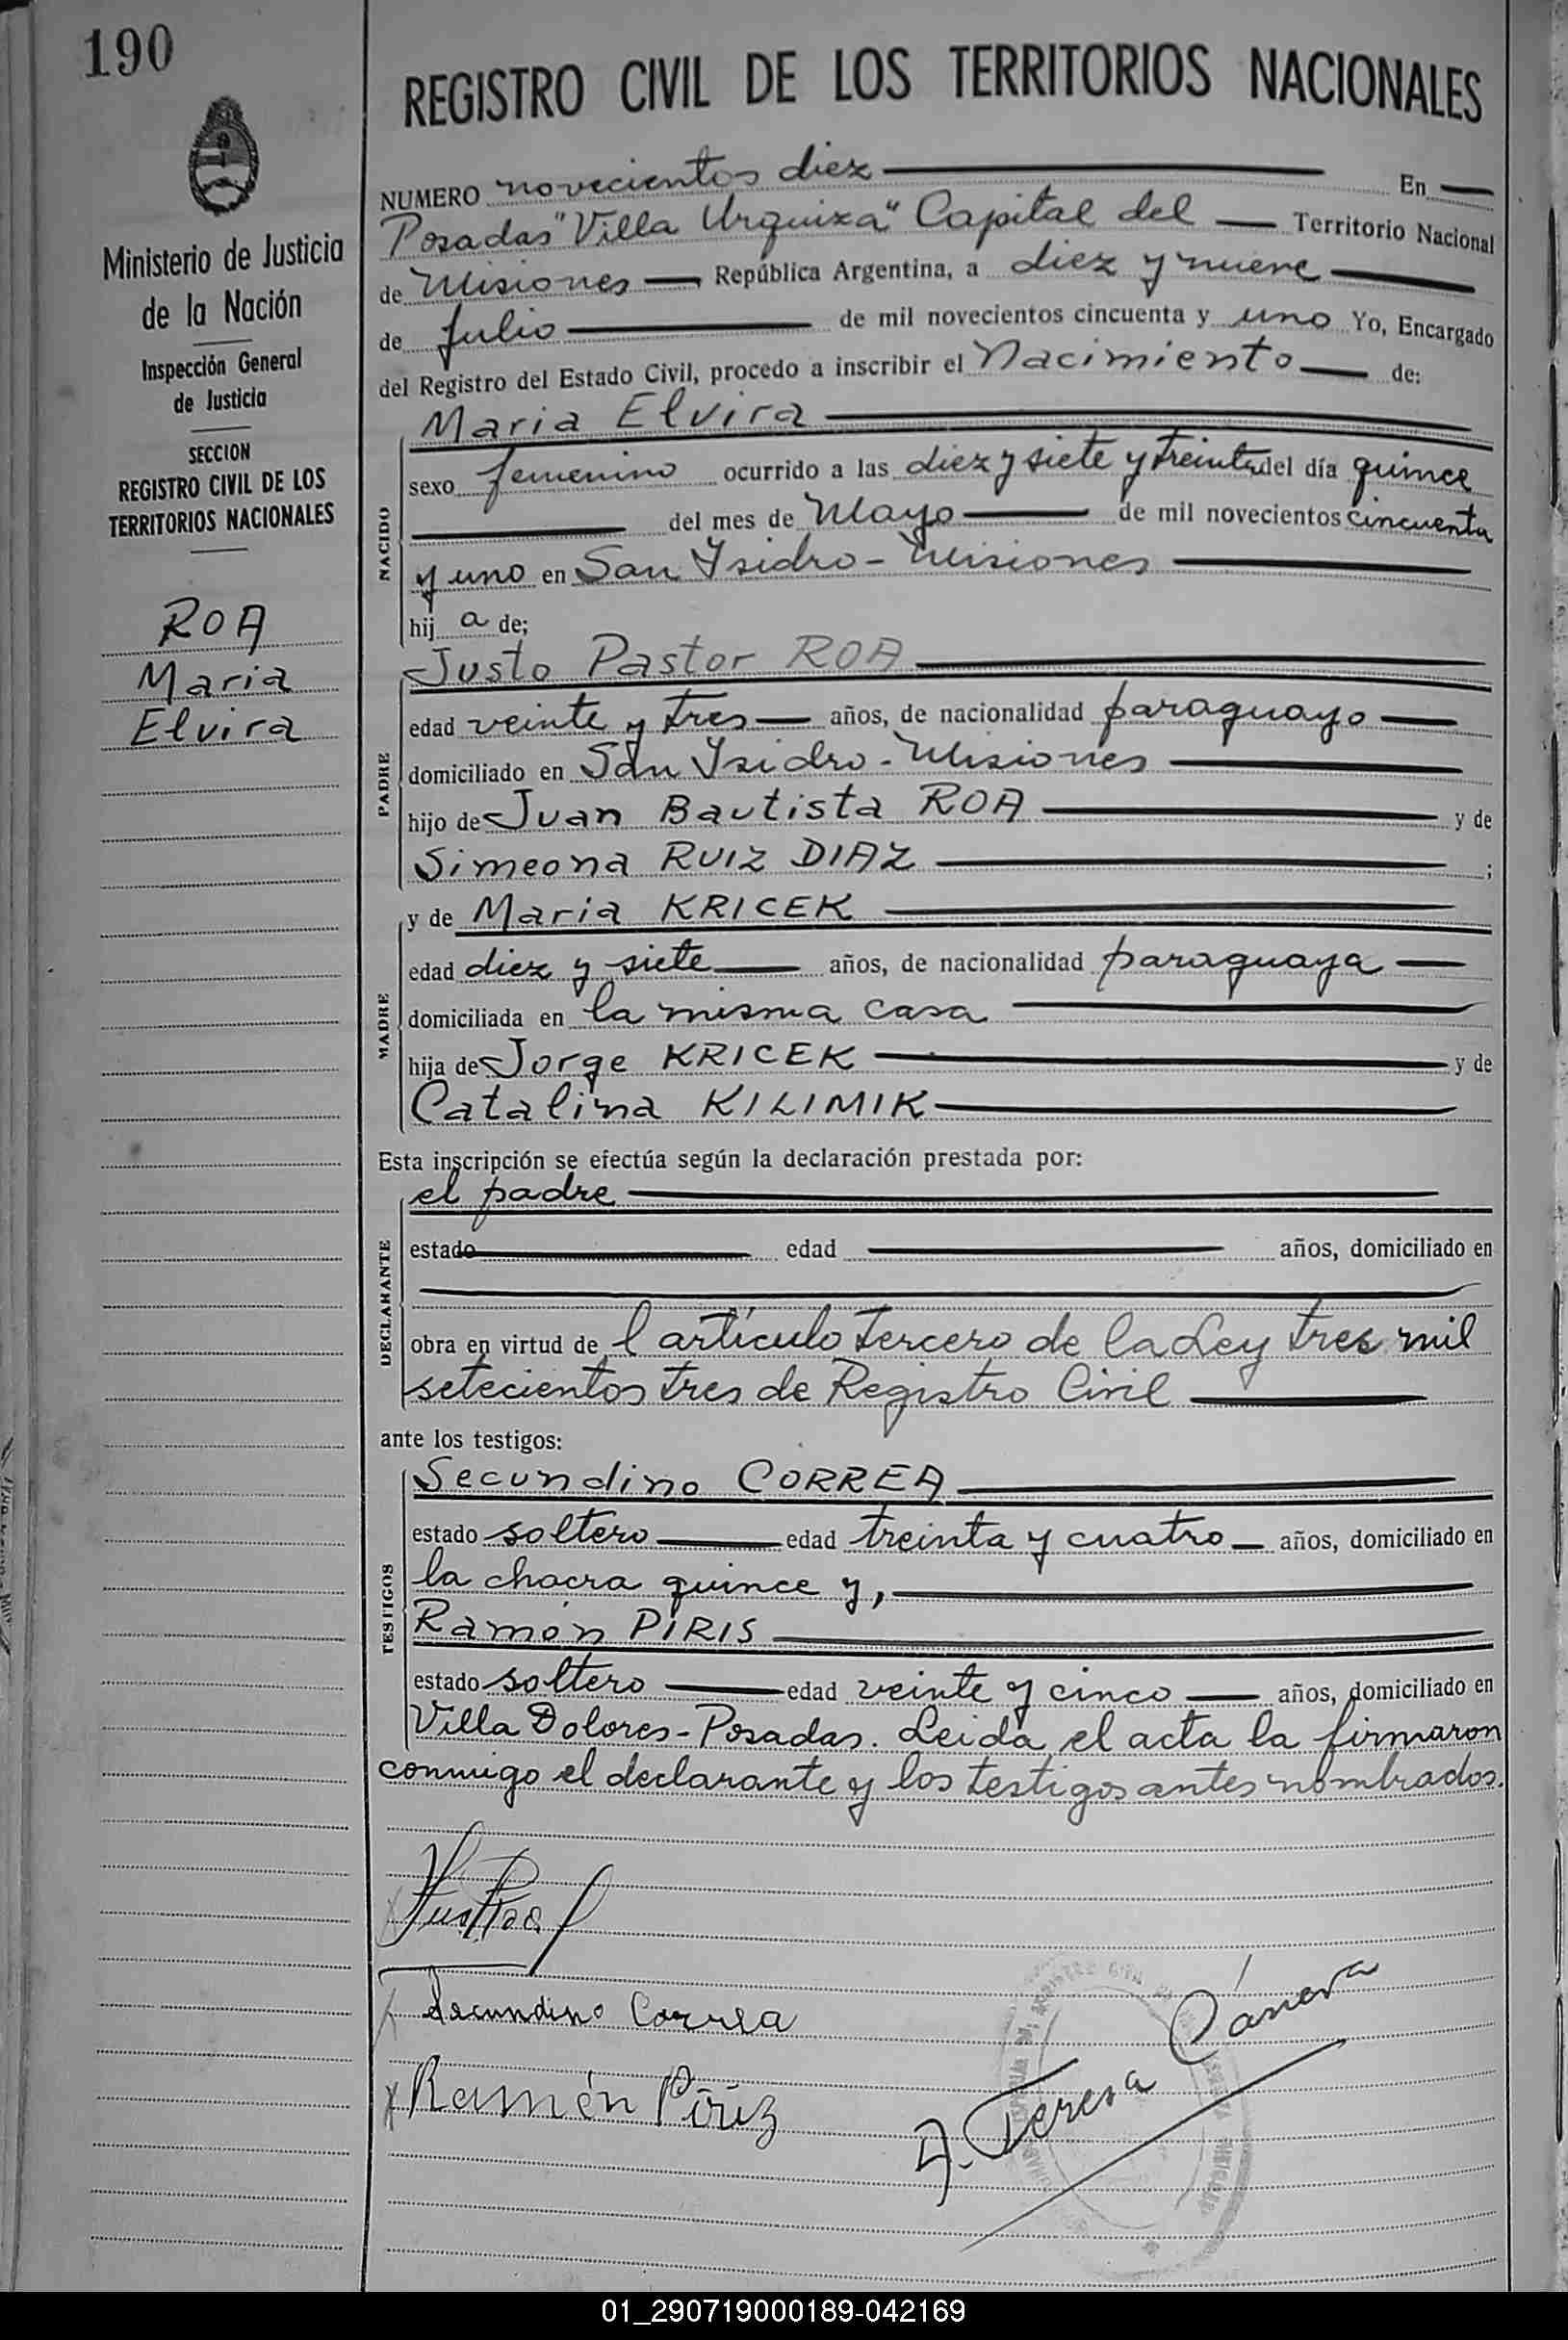 190
REGISTRO CIVIL DE LOS TERRITORIOS NACIONALES
Ministerio de Justicia
de la Nación
Inspección General
de Justicia
SECCION
REGISTRO CIVIL DE LOS
TERRITORIOS NACIONALES
ROA
Maria
Elvira
NUMERO novecientos diez En
Posadas "Villa Urquiza" Capital del Territorio Nacional
de Misiones República Argentina, a diez y nueve
de Julio de mil novecientos cincuenta y uno Yo, Encargado
del Registro del Estado Civil, procedo a inscribir el Nacimiento de:
NACIDO
Maria Elvira
sexo femenino ocurrido a las diez y siete y treinta del día quince
del mes de Mayo de mil novecientos cincuenta
y uno en San Ysidro - Misiones
hij a de;
PADRE
Justo Pastor ROA
edad veinte y tres años, de nacionalidad paraguayo
domiciliado en San Ysidro - Misiones
hijo de Juan Bautista ROA y de
Simeona RUIZ DIAZ ;
MADRE
y de Maria KRICEK
edad diez y siete años, de nacionalidad paraguaya
domiciliada en la misma casa
hija de Jorge KRICEK y de
Catalina KILIMIK
Esta inscripción se efectúa según la declaración prestada por:
DECLARANTE
el padre
estado edad años, domiciliado en
obra en virtud de l artículo tercero de la Ley tres mil
setecientos tres de Registro Civil
ante los testigos:
TESTIGOS
Secundino CORREA
estado soltero edad treinta y cuatro años, domiciliado en
la chacra quince y,
Ramón PIRIS
estado soltero edad veinte y cinco años, domiciliado en
Villa Dolores - Posadas. Leida el acta la firmaron
conmigo el declarante y los testigos antes nombrados.
Secundino Correa
Ramón Píriz
A. Teresa
01_290719000189-042169